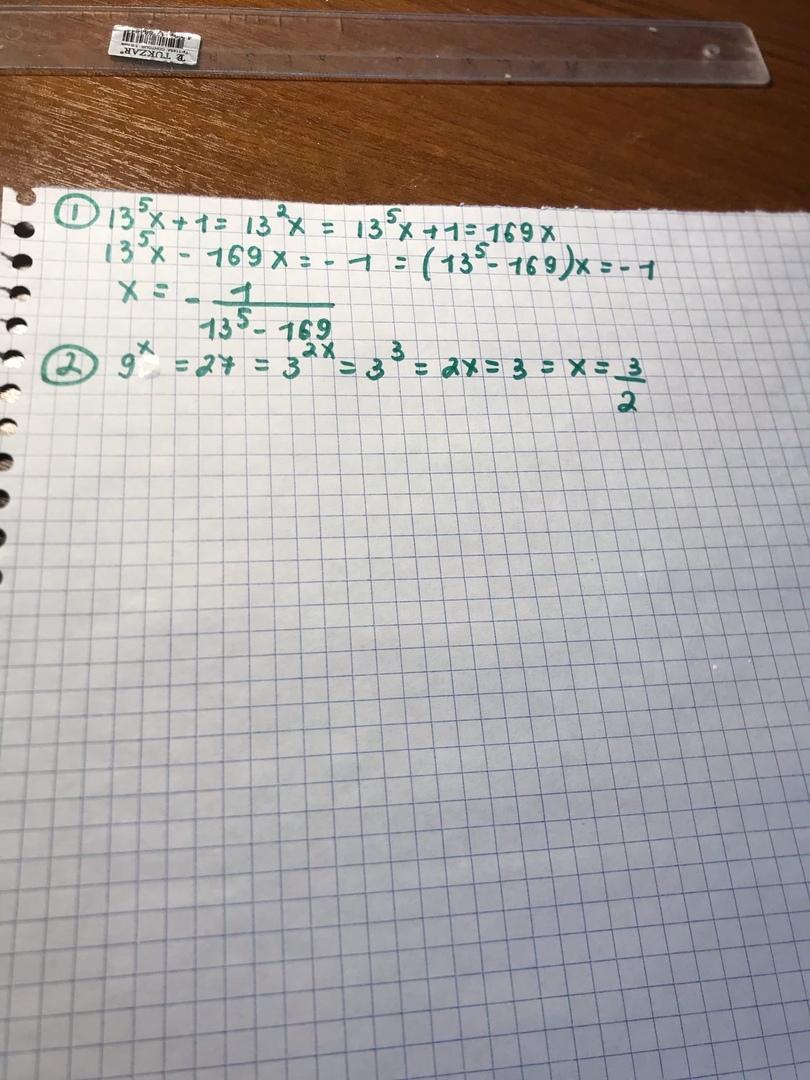 TUKZAR®
① 13⁵x + 1 = 13²x = 13⁵x + 1 = 169x
13⁵x - 169x = - 1 = (13⁵ - 169)x = - 1
x = - 1/(13⁵ - 169)
② 9ˣ = 27 = 3²ˣ = 3³ = 2x = 3 = x = 3/2